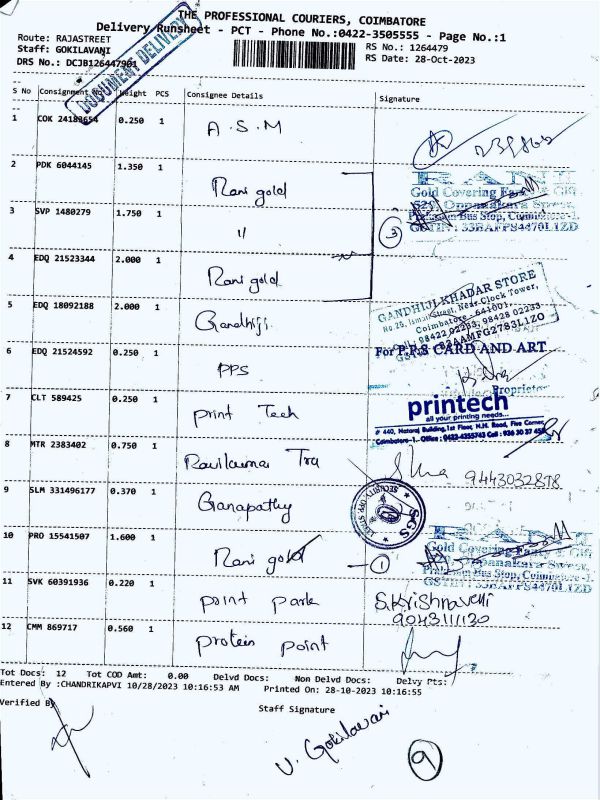 THE PROFESSIONAL COURIERS, COIMBATORE
Delivery Runsheet - PCT - Phone No.:0422-3505555 - Page No.:1
Route: RAJASTREET
RS No.: 1264479
Staff: GOKILAVANI
RS Date: 28-Oct-2023
DRS No.: DCJB126447901
DOCUMENT DELIVERY
S No Consignment No Weight PCS Consignee Details Signature
1 COK 24183654 0.250 1 A.S.M
2 PDK 6044145 1.350 1 Rani gold
RANI
Gold Covering
529, Oppanakara Street,
Prakasam Bus Stop, Coimbatore-1.
GSTIN: 33BAFPS4470L1ZD
3 SVP 1480279 1.750 1 11
3
4 EDQ 21523344 2.000 1 Rani gold
GANDHIJI KHADAR STORE
Near Clock Tower,
Coimbatore - 641001.
98422 02233, 98428 02233
5 EDQ 18092188 2.000 1 Gandhiji
For P.P.S CARD AND ART
Proprietor
6 EDQ 21524592 0.250 1 PPS
7 CLT 589425 0.250 1 Print Tech
printech
all your printing needs...
# 440, Nataraj Building, 1st Floor, N.H. Road, Five Corner,
Coimbatore-1. Office : 0422-4355743 Cell : 936 30 37 45
8 MTR 2383402 0.750 1
9443032878
9 SLM 331496177 0.370 1 Ganapathy
SGS
10 PRO 15541507 1.600 1 Rani gold
1
RANI
Gold Covering
Oppanakara Street,
Prakasam Bus Stop, Coimbatore-1.
11 SVK 60391936 0.220 1 point park
S.Krishnaveni
9043111130
12 CMM 869717 0.560 1 protein point
Tot Docs: 12 Tot COD Amt: 0.00 Delvd Docs: Non Delvd Docs: Delvy Pts:
Entered By :CHANDRIKAPVI 10/28/2023 10:16:53 AM Printed On: 28-10-2023 10:16:55
Verified By
Staff Signature
V. Gokilavani
9